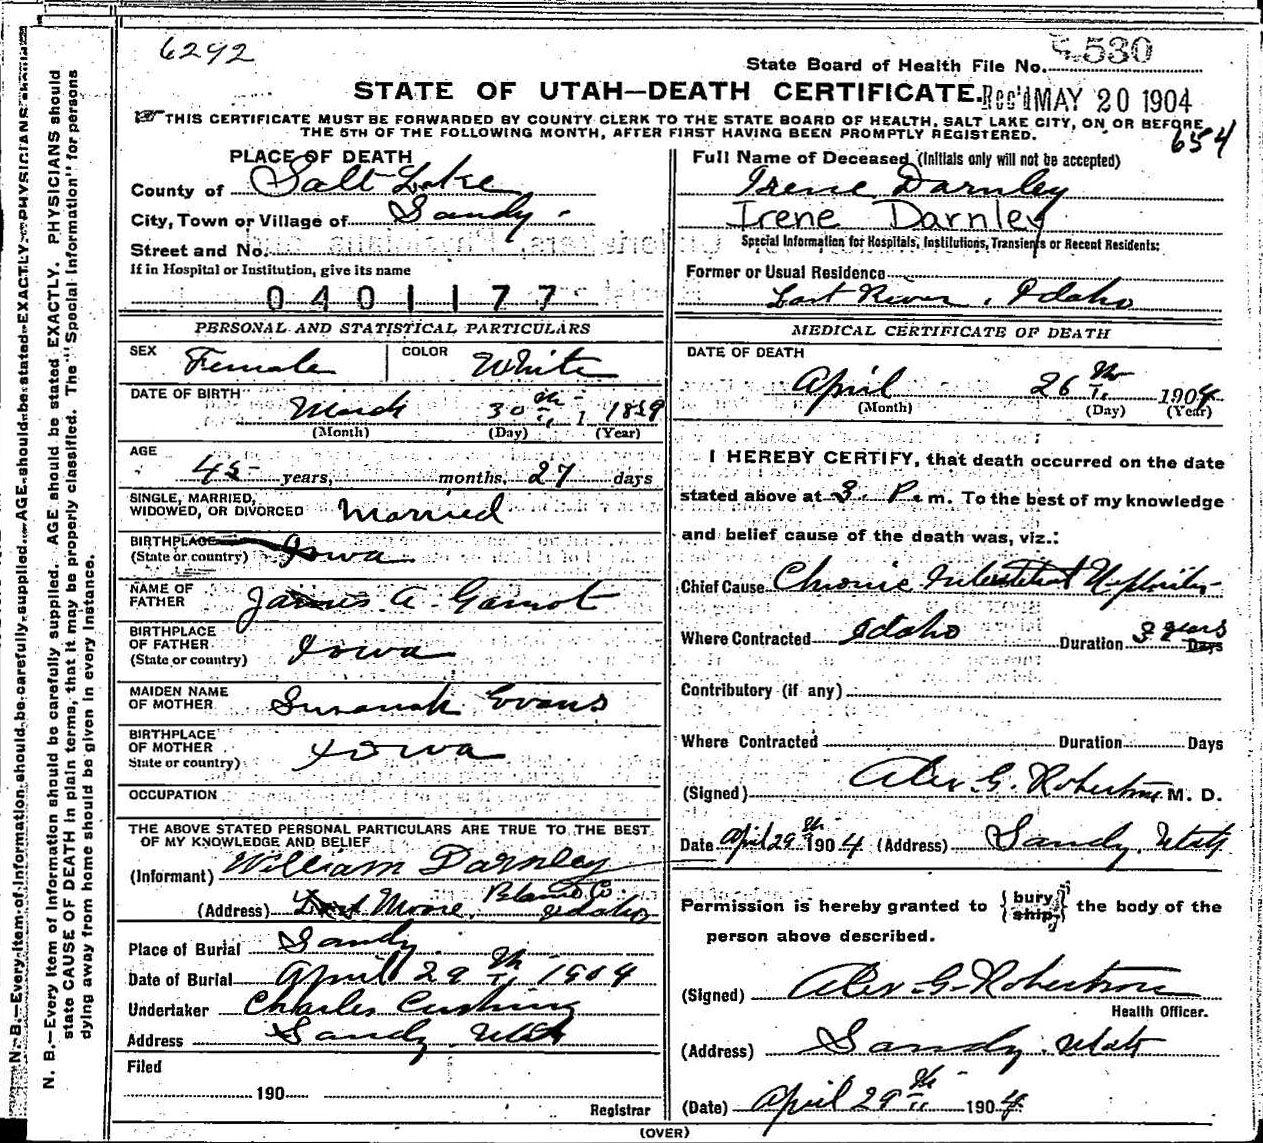 6292
State Board of Health File No. 530
STATE OF UTAH—DEATH CERTIFICATE. Rec'd MAY 20 1904
THIS CERTIFICATE MUST BE FORWARDED BY COUNTY CLERK TO THE STATE BOARD OF HEALTH, SALT LAKE CITY, ON OR BEFORE
THE 5TH OF THE FOLLOWING MONTH, AFTER FIRST HAVING BEEN PROMPTLY REGISTERED.
654
PLACE OF DEATH
County of Salt Lake
City, Town or Village of Sandy
Street and No.
If in Hospital or Institution, give its name
0401177
PERSONAL AND STATISTICAL PARTICULARS
SEX Female COLOR White
DATE OF BIRTH March 30th 1 1859
(Month) (Day) (Year)
AGE
45 years, months, 27 days
SINGLE, MARRIED,
WIDOWED, OR DIVORCED Married
BIRTHPLACE
(State or country) Iowa
NAME OF
FATHER James A.
BIRTHPLACE
OF FATHER
(State or country) Iowa
MAIDEN NAME
OF MOTHER Susanah Evans
BIRTHPLACE
OF MOTHER
State or country) Iowa
OCCUPATION
THE ABOVE STATED PERSONAL PARTICULARS ARE TRUE TO THE BEST
OF MY KNOWLEDGE AND BELIEF
(Informant) William Darnley
(Address) Moore, Co. Idaho
Place of Burial Sandy
Date of Burial April 29th 1904
Undertaker Charles Cushing
Address Sandy Utah
Filed
190
Registrar
Full Name of Deceased (Initials only will not be accepted)
Irene Darnley
Irene Darnley
Special Information for Hospitals, Institutions, Transients or Recent Residents:
Former or Usual Residence
Lost River, Idaho
MEDICAL CERTIFICATE OF DEATH
DATE OF DEATH
April 26th 1904
(Month) (Day) (Year)
I HEREBY CERTIFY, that death occurred on the date
stated above at 3. P. m. To the best of my knowledge
and belief cause of the death was, viz.:
Chief Cause Chronic Interstitial Nephritis
Where Contracted Idaho Duration 3 years Days
Contributory (if any)
Where Contracted Duration Days
(Signed) Alex. G. Robertson M. D.
Date April 29th 1904 (Address) Sandy, Utah
Permission is hereby granted to {bury ship} the body of the
person above described.
(Signed) Alex. G. Robertson
Health Officer.
(Address) Sandy, Utah
(Date) April 29th 1904
(OVER)
N. B.—Every item of information should be carefully supplied. AGE should be stated EXACTLY. PHYSICIANS should
state CAUSE OF DEATH in plain terms, that it may be properly classified. The "Special Information" for persons
dying away from home should be given in every instance.
N. B.—Every item of information should be carefully supplied. AGE should be stated EXACTLY. PHYSICIANS